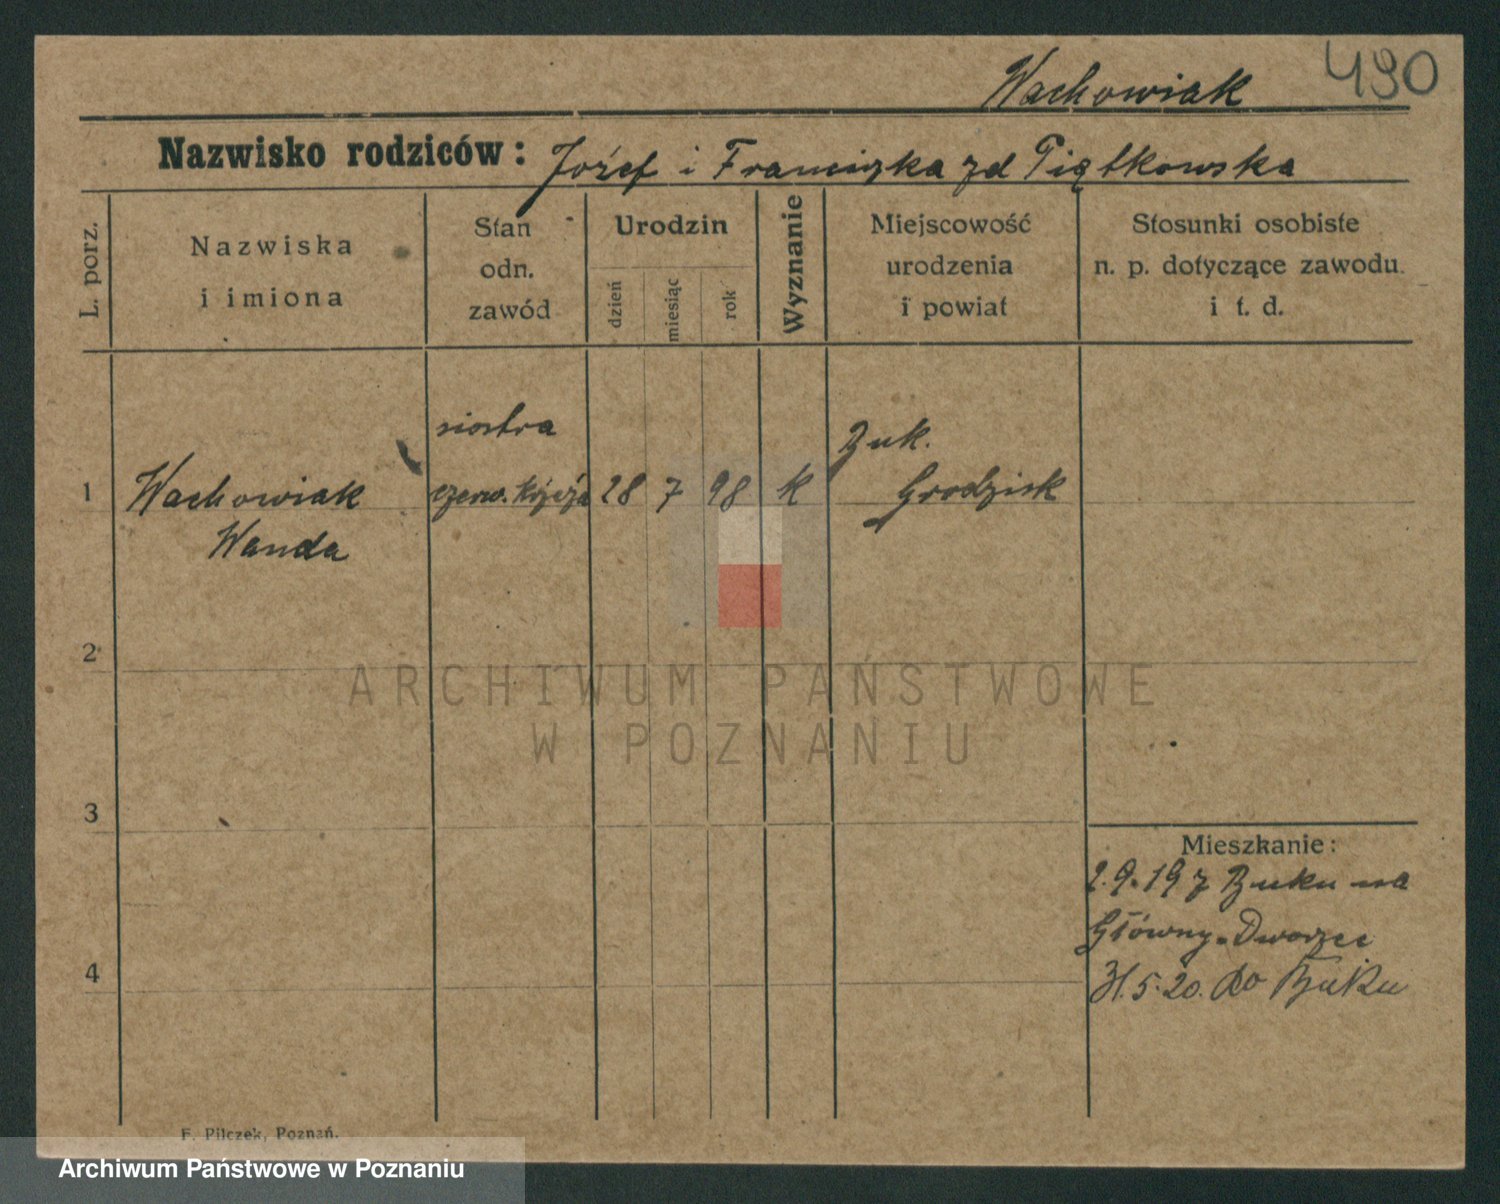 Wachowiak
490
Nazwisko rodziców: Józef i Franciszka zd Piątkowska
L. porz.
Nazwiska
i imiona
Stan
odn.
zawód
Urodzin
dzień
miesiąc
rok
Wyznanie
Miejscowość
urodzenia
i powiat
Stosunki osobiste
n. p. dotyczące zawodu
i t. d.
1
Wachowiak
Wanda
siostra
czerw. Krzyża
28 7 98 k
Buk.
Grodzisk
2
3
4
Mieszkanie:
2.9.19 z Buku na
Główny-Dworzec
31.5.20. do Buku
F. Pilczek, Poznań.
ARCHIWUM PAŃSTWOWE
W POZNANIU
Archiwum Państwowe w Poznaniu